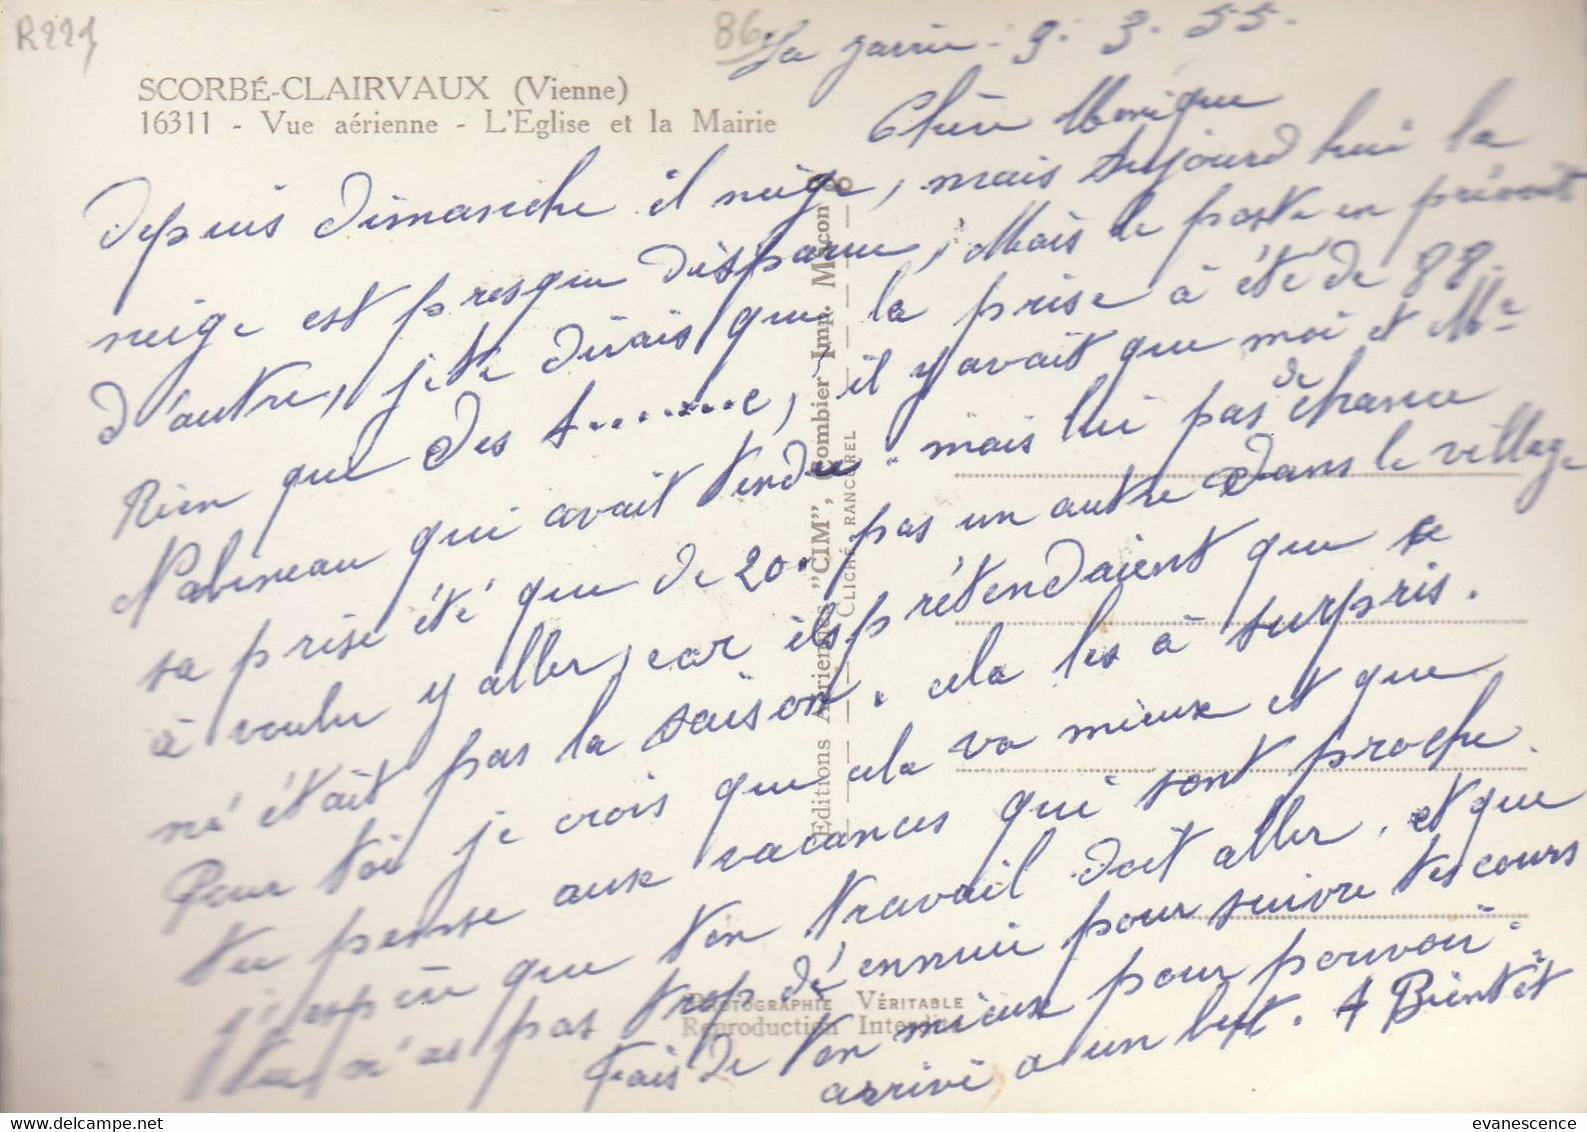 R221
86
SCORBÉ-CLAIRVAUX (Vienne)
16311 - Vue aérienne - L'Eglise et la Mairie
La 9.3.55.
Chère Monique
Depuis dimanche il neige, mais Aujourd hui la
neige est presque disparue, Mais le poste en prévoit
d'autre, je te dirais que la prise à été de 88.
Rien que des t.......e, il y avait que moi et Mr
Nabineau qui avait tendu. mais lui pas de chance
sa prise été que de 20. pas un autre dans le village
à voulu y aller, car ils prétendaient que se
n'était pas la saison. cela les à surpris.
Pour toi je crois que cela va mieux et que
tu pense aux vacances qui sont proche.
j'espère que ton travail doit aller. et que
tu n'as pas trop d'ennui pour suivre tes cours
Fais de ton mieux pour pouvoir
arrivé a un but. A Bientôt
Editions Aériennes "CIM", Combier Imp. Macon
CLICHÉ RANCUREL
PHOTOGRAPHIE VÉRITABLE
Reproduction Interdite
evanescence